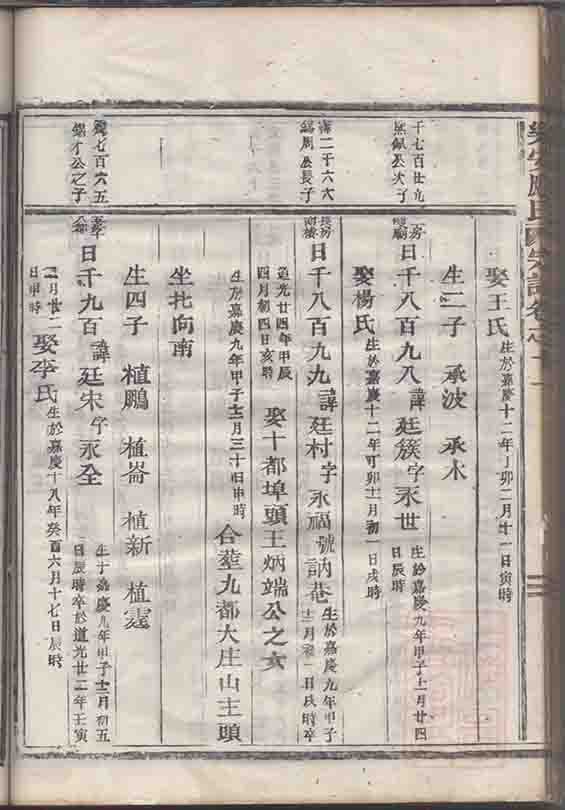 樂安
氏
宗譜卷之十一
娶王氏生於嘉慶十二年丁卯二月廿一日寅時
生二子 承波 承木
千七百廿九
熊佩公次子
日千八百九八諱廷簇字永世生於嘉慶九年甲子十二月廿四
日辰時
娶楊氏生於嘉慶十二年丁卯十一月初一日戌時
二千六六
周公長子
日千八百九九諱廷村字永福號訥巷生於嘉慶九年甲子
十二月初一日戌時卒
道光廿四年甲辰
四月初四日亥時
娶十都埠頭王炳端公之女
生於嘉慶九年甲子十二月三十日申時
合塟九都大庄山主頭
坐北向南
生四子 植鵬 植崙 植新 植霆
七百六五
才公之子
日千九百諱廷宋字永全生于嘉慶九年甲子十二月初五
日辰時卒於道光廿二年壬寅
二月廿二
日申時
娶李氏生於嘉慶十八年癸酉六月十七日辰時